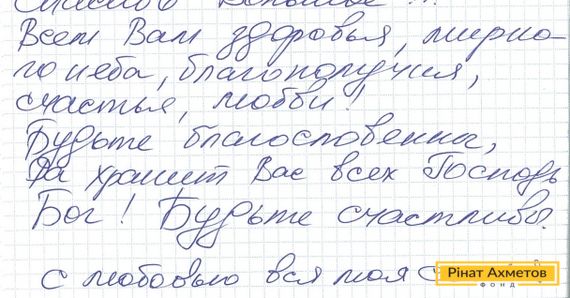 Спасибо большое!!!
Всем Вам здоровья, мирно-
го неба, благополучия,
счастья, любви!
Будьте благословенны,
Да хранит Вас всех Господь
Бог! Будьте счастливы.
С любовью вся моя
Рінат Ахметов
ФОНД